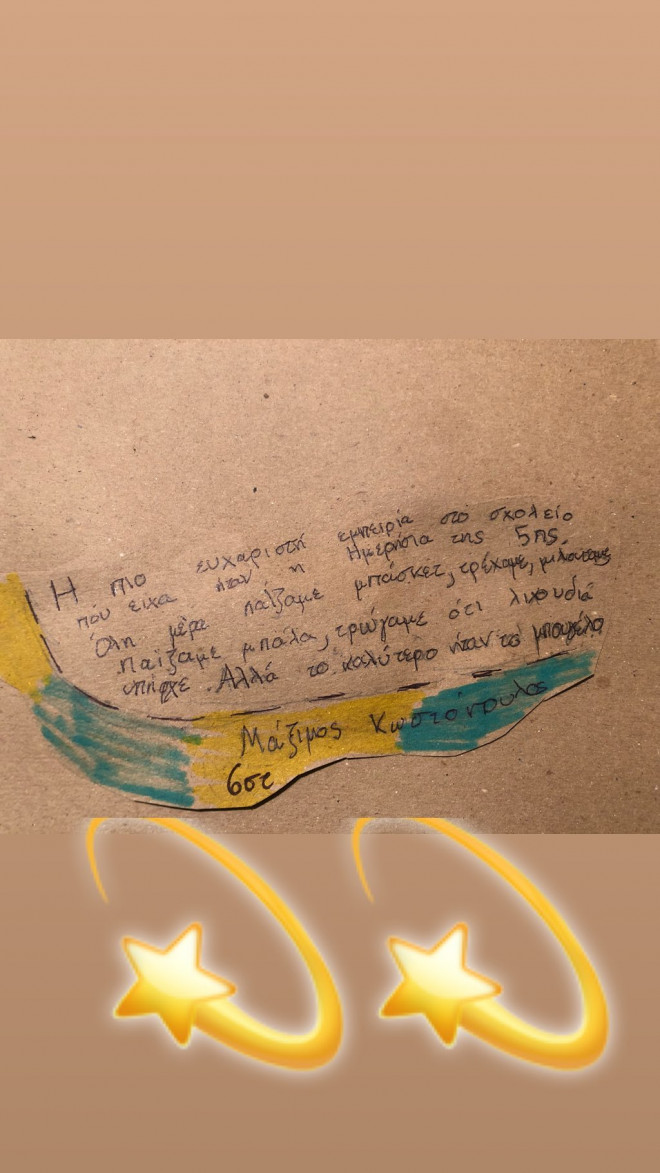 Η πιο ευχαριστή εμπειρία στο σχολείο
πού ειχα ήταν η Ημερήσια της 5ης.
Όλη μέρα παίζαμε μπάσκετ, τρέχαμε, μιλούσαμε
παίζαμε μπάλα, τρώγαμε ότι λιχουδιά
υπήρχε. Αλλά το καλύτερο ήταν το μπουγέλο
Μάξιμος Κωστόπουλος
6στ